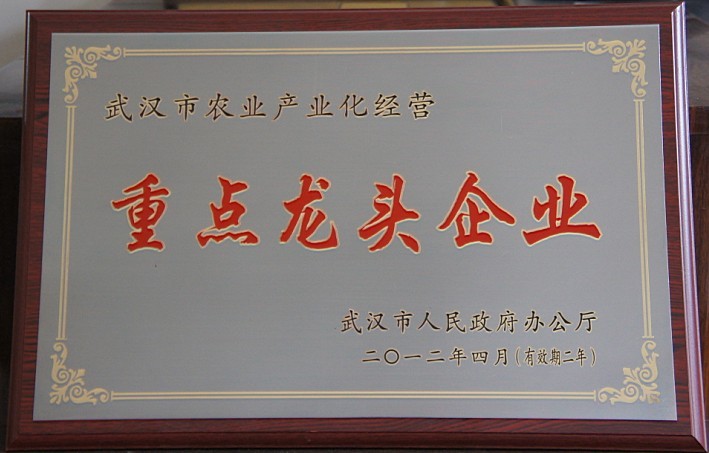 武汉市农业产业化经营
重点龙头企业
武汉市人民政府办公厅
二〇一二年四月(有效期二年)